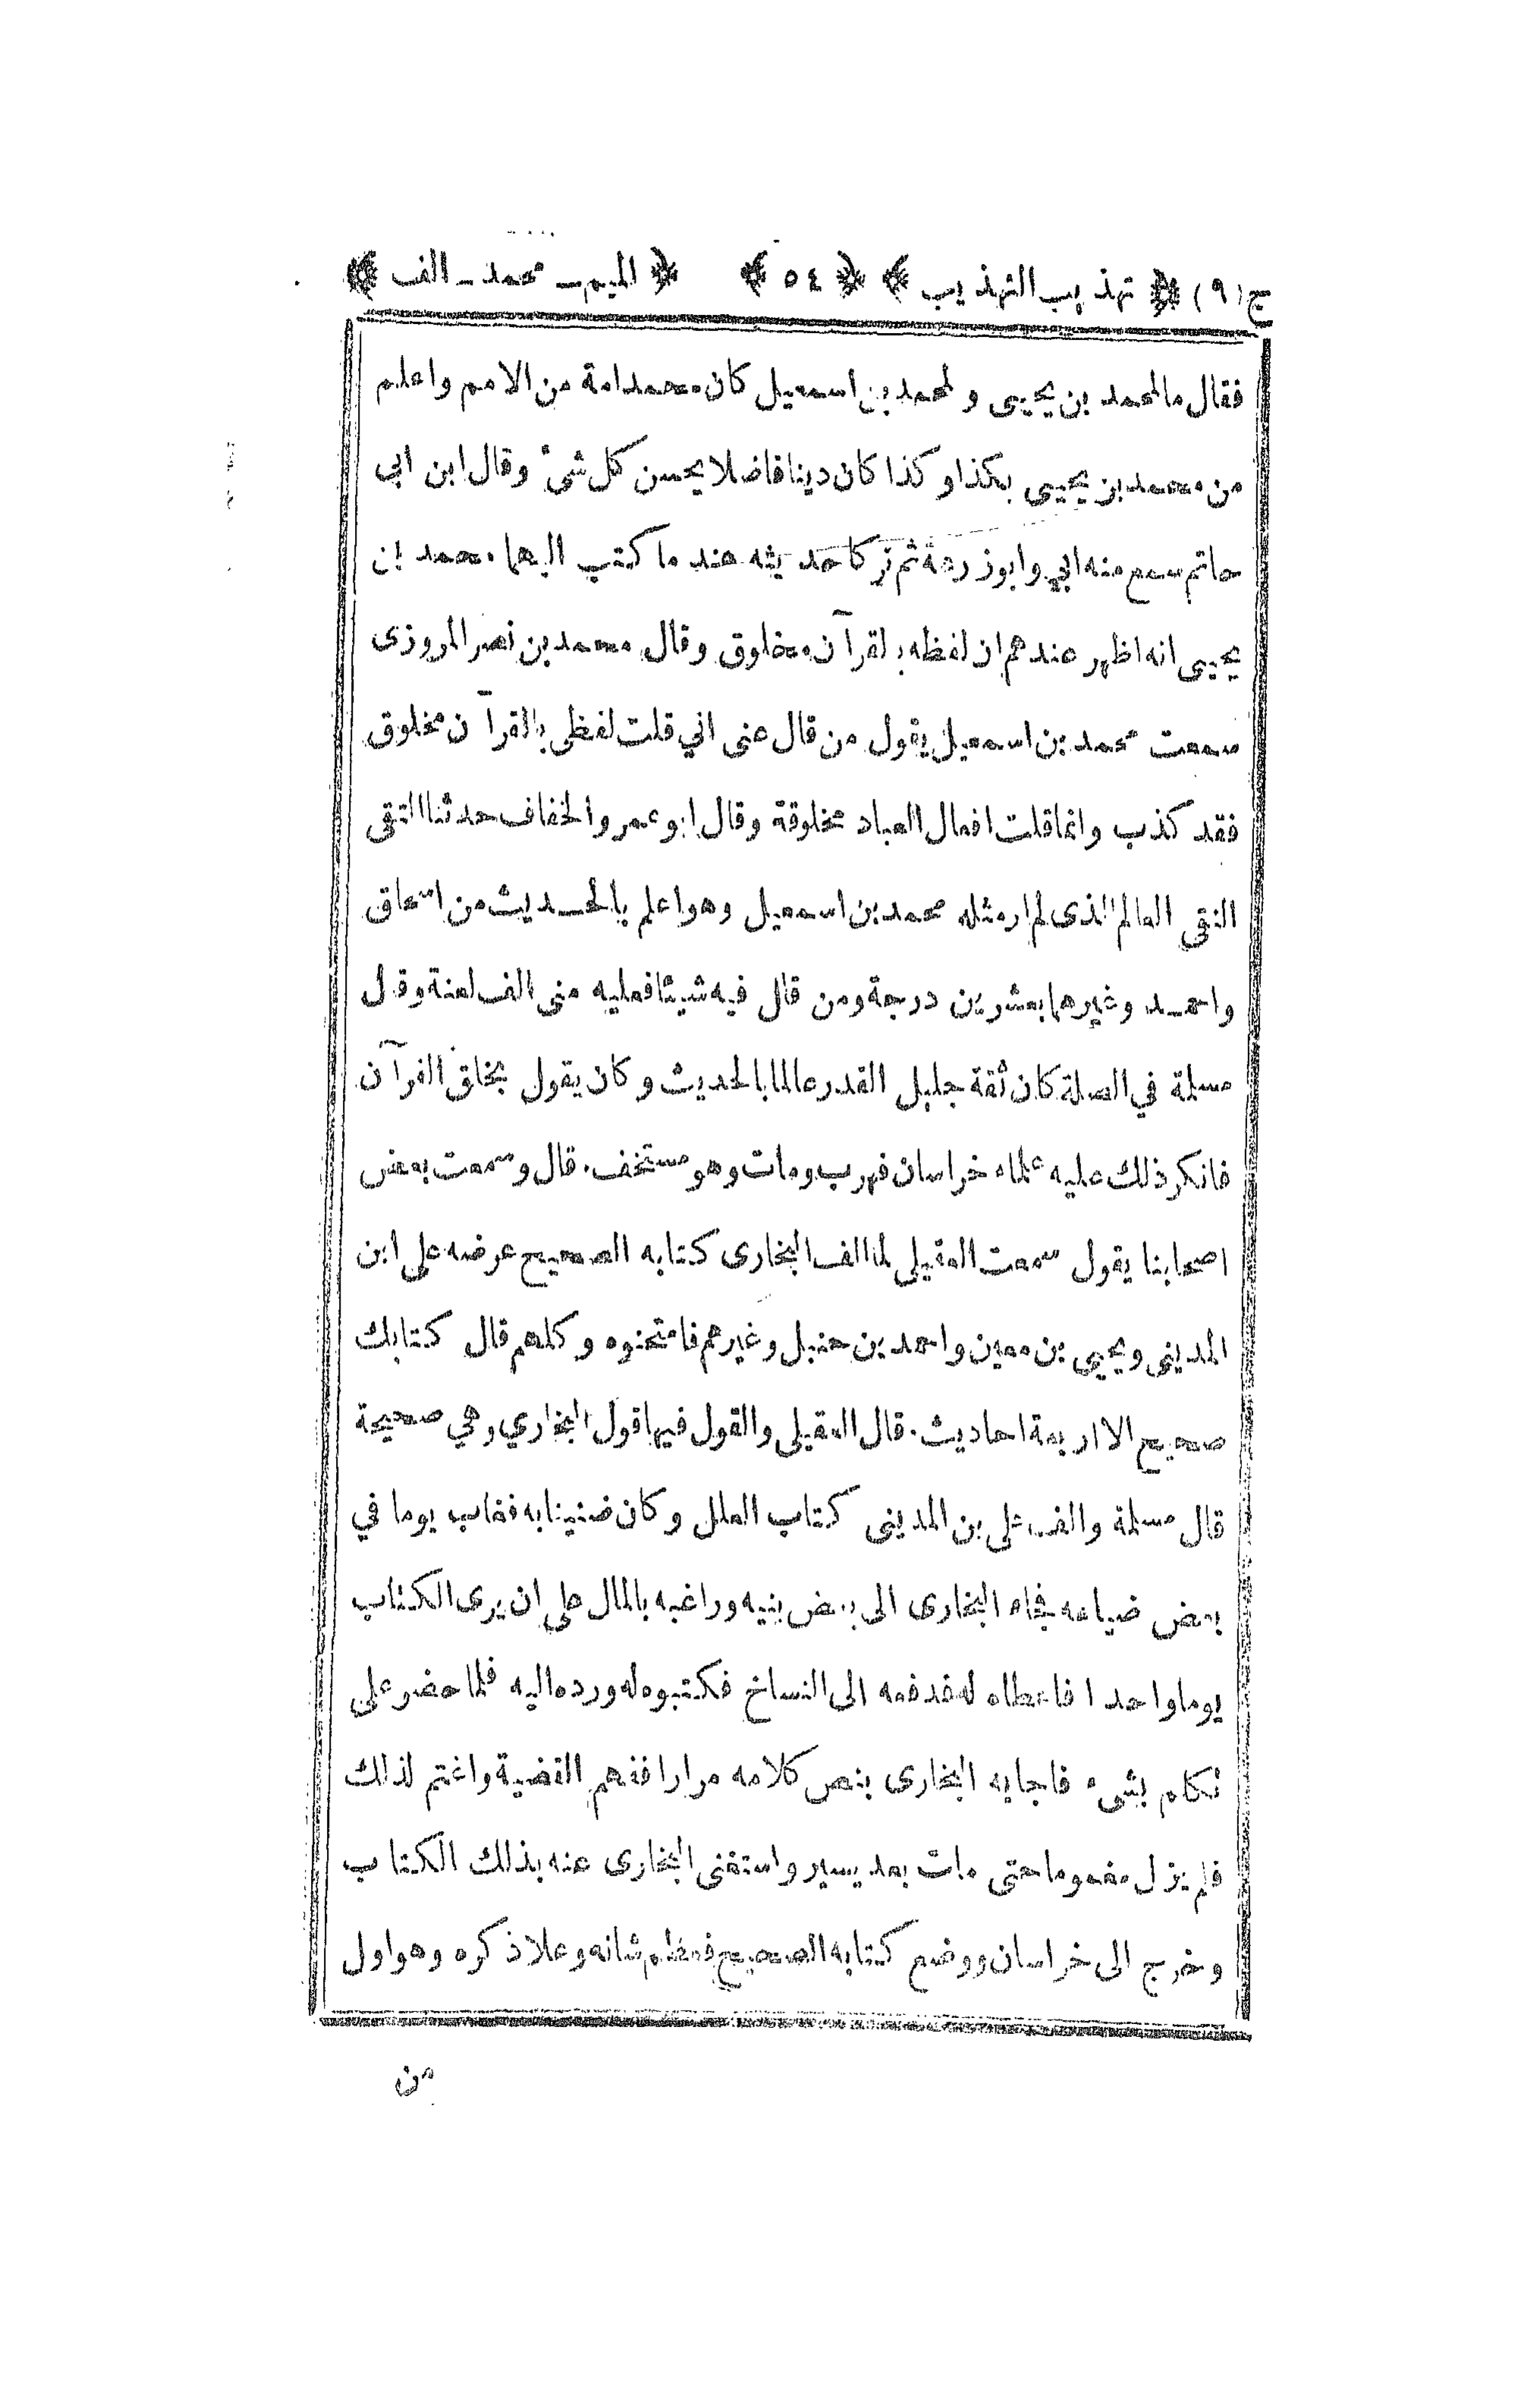 ج (٩) ﴿ تهذيب التهذيب ﴾ ﴿ ٥٤ ﴾ ﴿ الميم ـ محمد ـ الف ﴾
فقال ما لمحمد بن يحيى و لمحمد بن اسمعيل كان محمد امة من الامم و اعلم
من محمد بن يحيى بكذا و كذا كان دينا فاضلا يحسن كل شئ وقال ابن ابي
حاتم سمع منه ابي و ابو زرعة ثم تركا حديثه عند ما كتب اليهما محمد بن
يحيى انه اظهر عندهم ان لفظه بالقرآن مخلوق وقال محمد بن نصر المروزى
سمعت محمد بن اسمعيل يقول من قال عنى اني قلت لفظى بالقرآن مخلوق
فقد كذب وانما قلت افعال العباد مخلوقة وقال ابو عمرو الخفاف حدثنا التقى
النقى العالم الذى لم ار مثله محمد بن اسمعيل وهو اعلم بالحديث من اسحاق
واحمد وغيرهما بعشرين درجة ومن قال فيه شيئا فعليه منى الف لعنة وقال
مسلمة في الصلة كان ثقة جليل القدر عالما بالحديث و كان يقول بخلق القرآن
فانكر ذلك عليه علماء خراسان فهرب ومات وهو مستخف. قال وسمعت بعض
اصحابنا يقول سمعت العقيلى لما الف البخارى كتابه الصحيح عرضه على ابن
المدينى ويحيى بن معين واحمد بن حنبل وغيرهم فامتحنوه و كلهم قال كتابك
صحيح الا اربعة احاديث. قال العقيلى والقول فيها قول البخاري وهي صحيحة
قال مسلمة والف على بن المدينى كتاب العلل و كان ضنينا به فغاب يوما في
بعض ضياعه فجاء البخارى الى بعض بنيه وراغبه بالمال على ان يرى الكتاب
يوما واحدا فاعطاه له فدفعه الى النساخ فكتبوه له ورده اليه فلما حضر على
تكلم بشىء فاجابه البخارى بنص كلامه مرارا ففهم القضية واغتم لذلك
فلم يزل مغموما حتى مات بعد يسير واستغنى البخارى عنه بذلك الكتاب
وخرج الى خراسان ووضع كتابه الصحيح فعظم شانه وعلا ذكره وهو اول
من